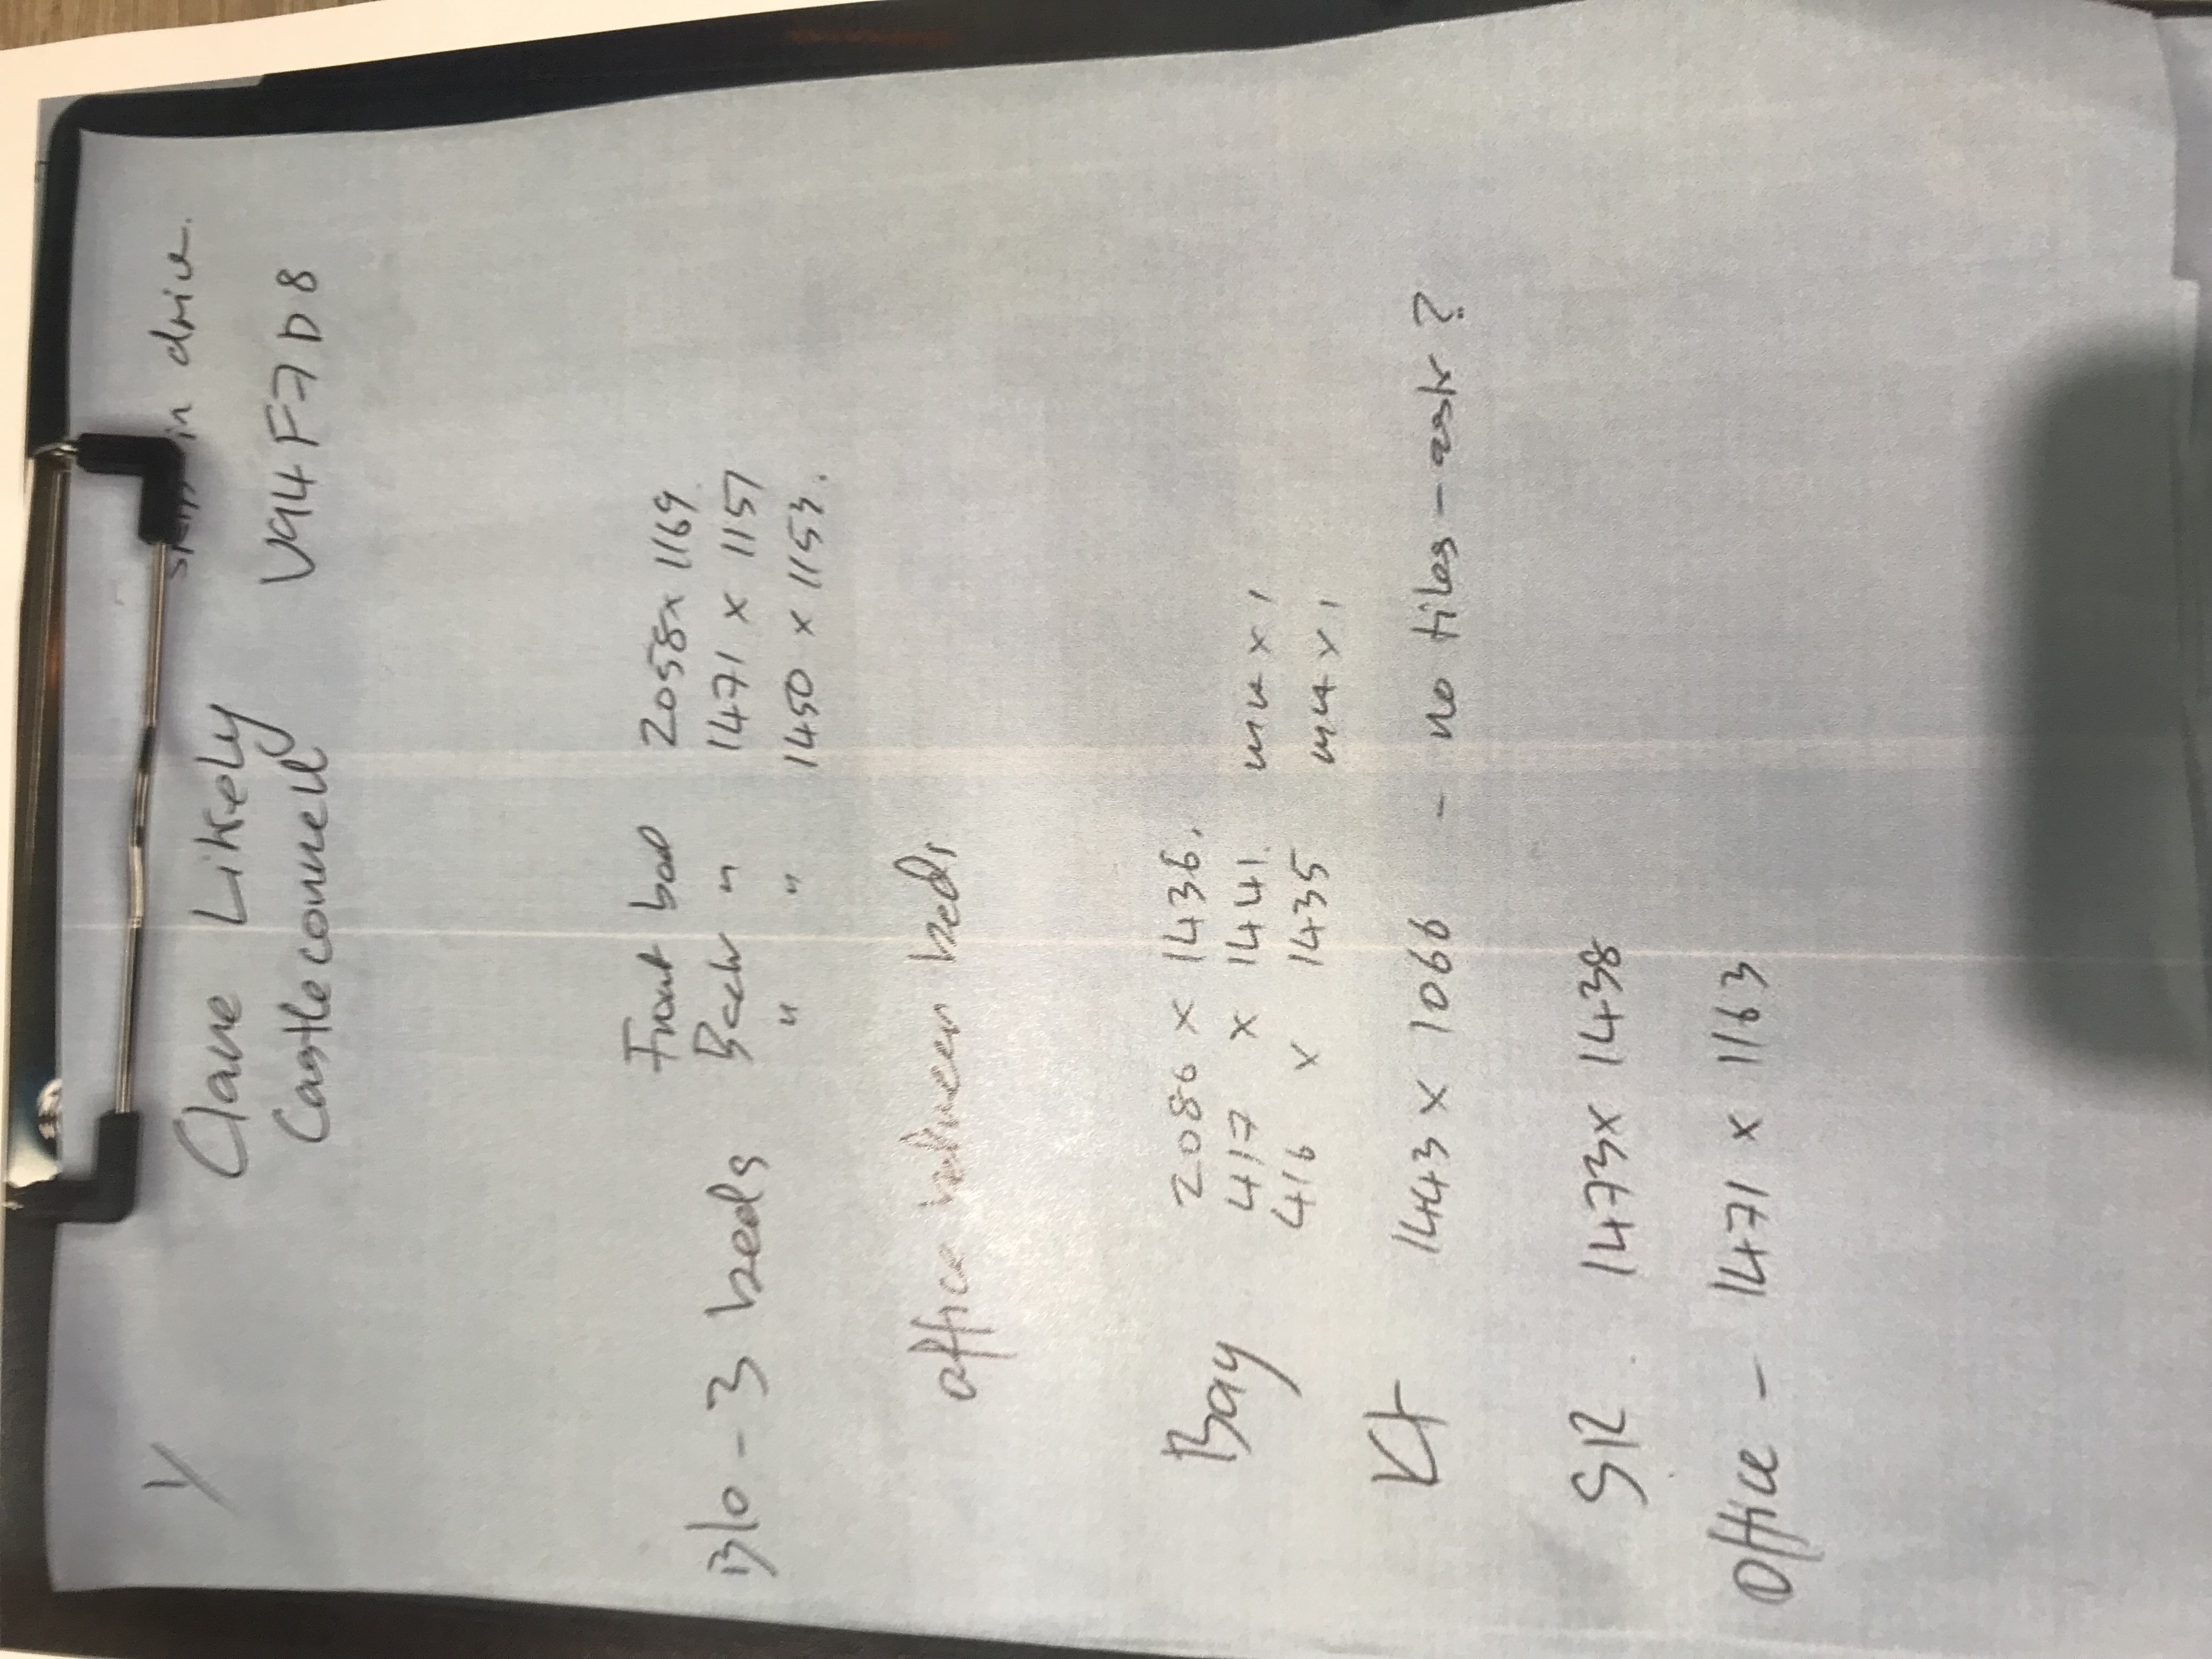 Clare Likely in drive.
Castleconnell V94 F7D8
B/o - 3 beds Front bed 2058 x 1169
Back " 1471 x 1151
" " 1450 x 1153.
office between beds
Bay 2086 x 1436.
417 x 1441. x 1
416 x 1435 x 1
Kt 1443 x 1066 - no tiles - ask?
SR. 1473 x 1438
Office - 1471 x 1163